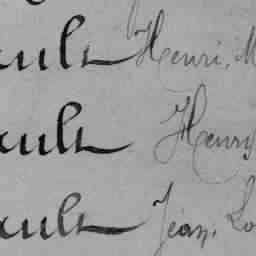 ault Henri, M
ault Henry
ault Jean, Lo